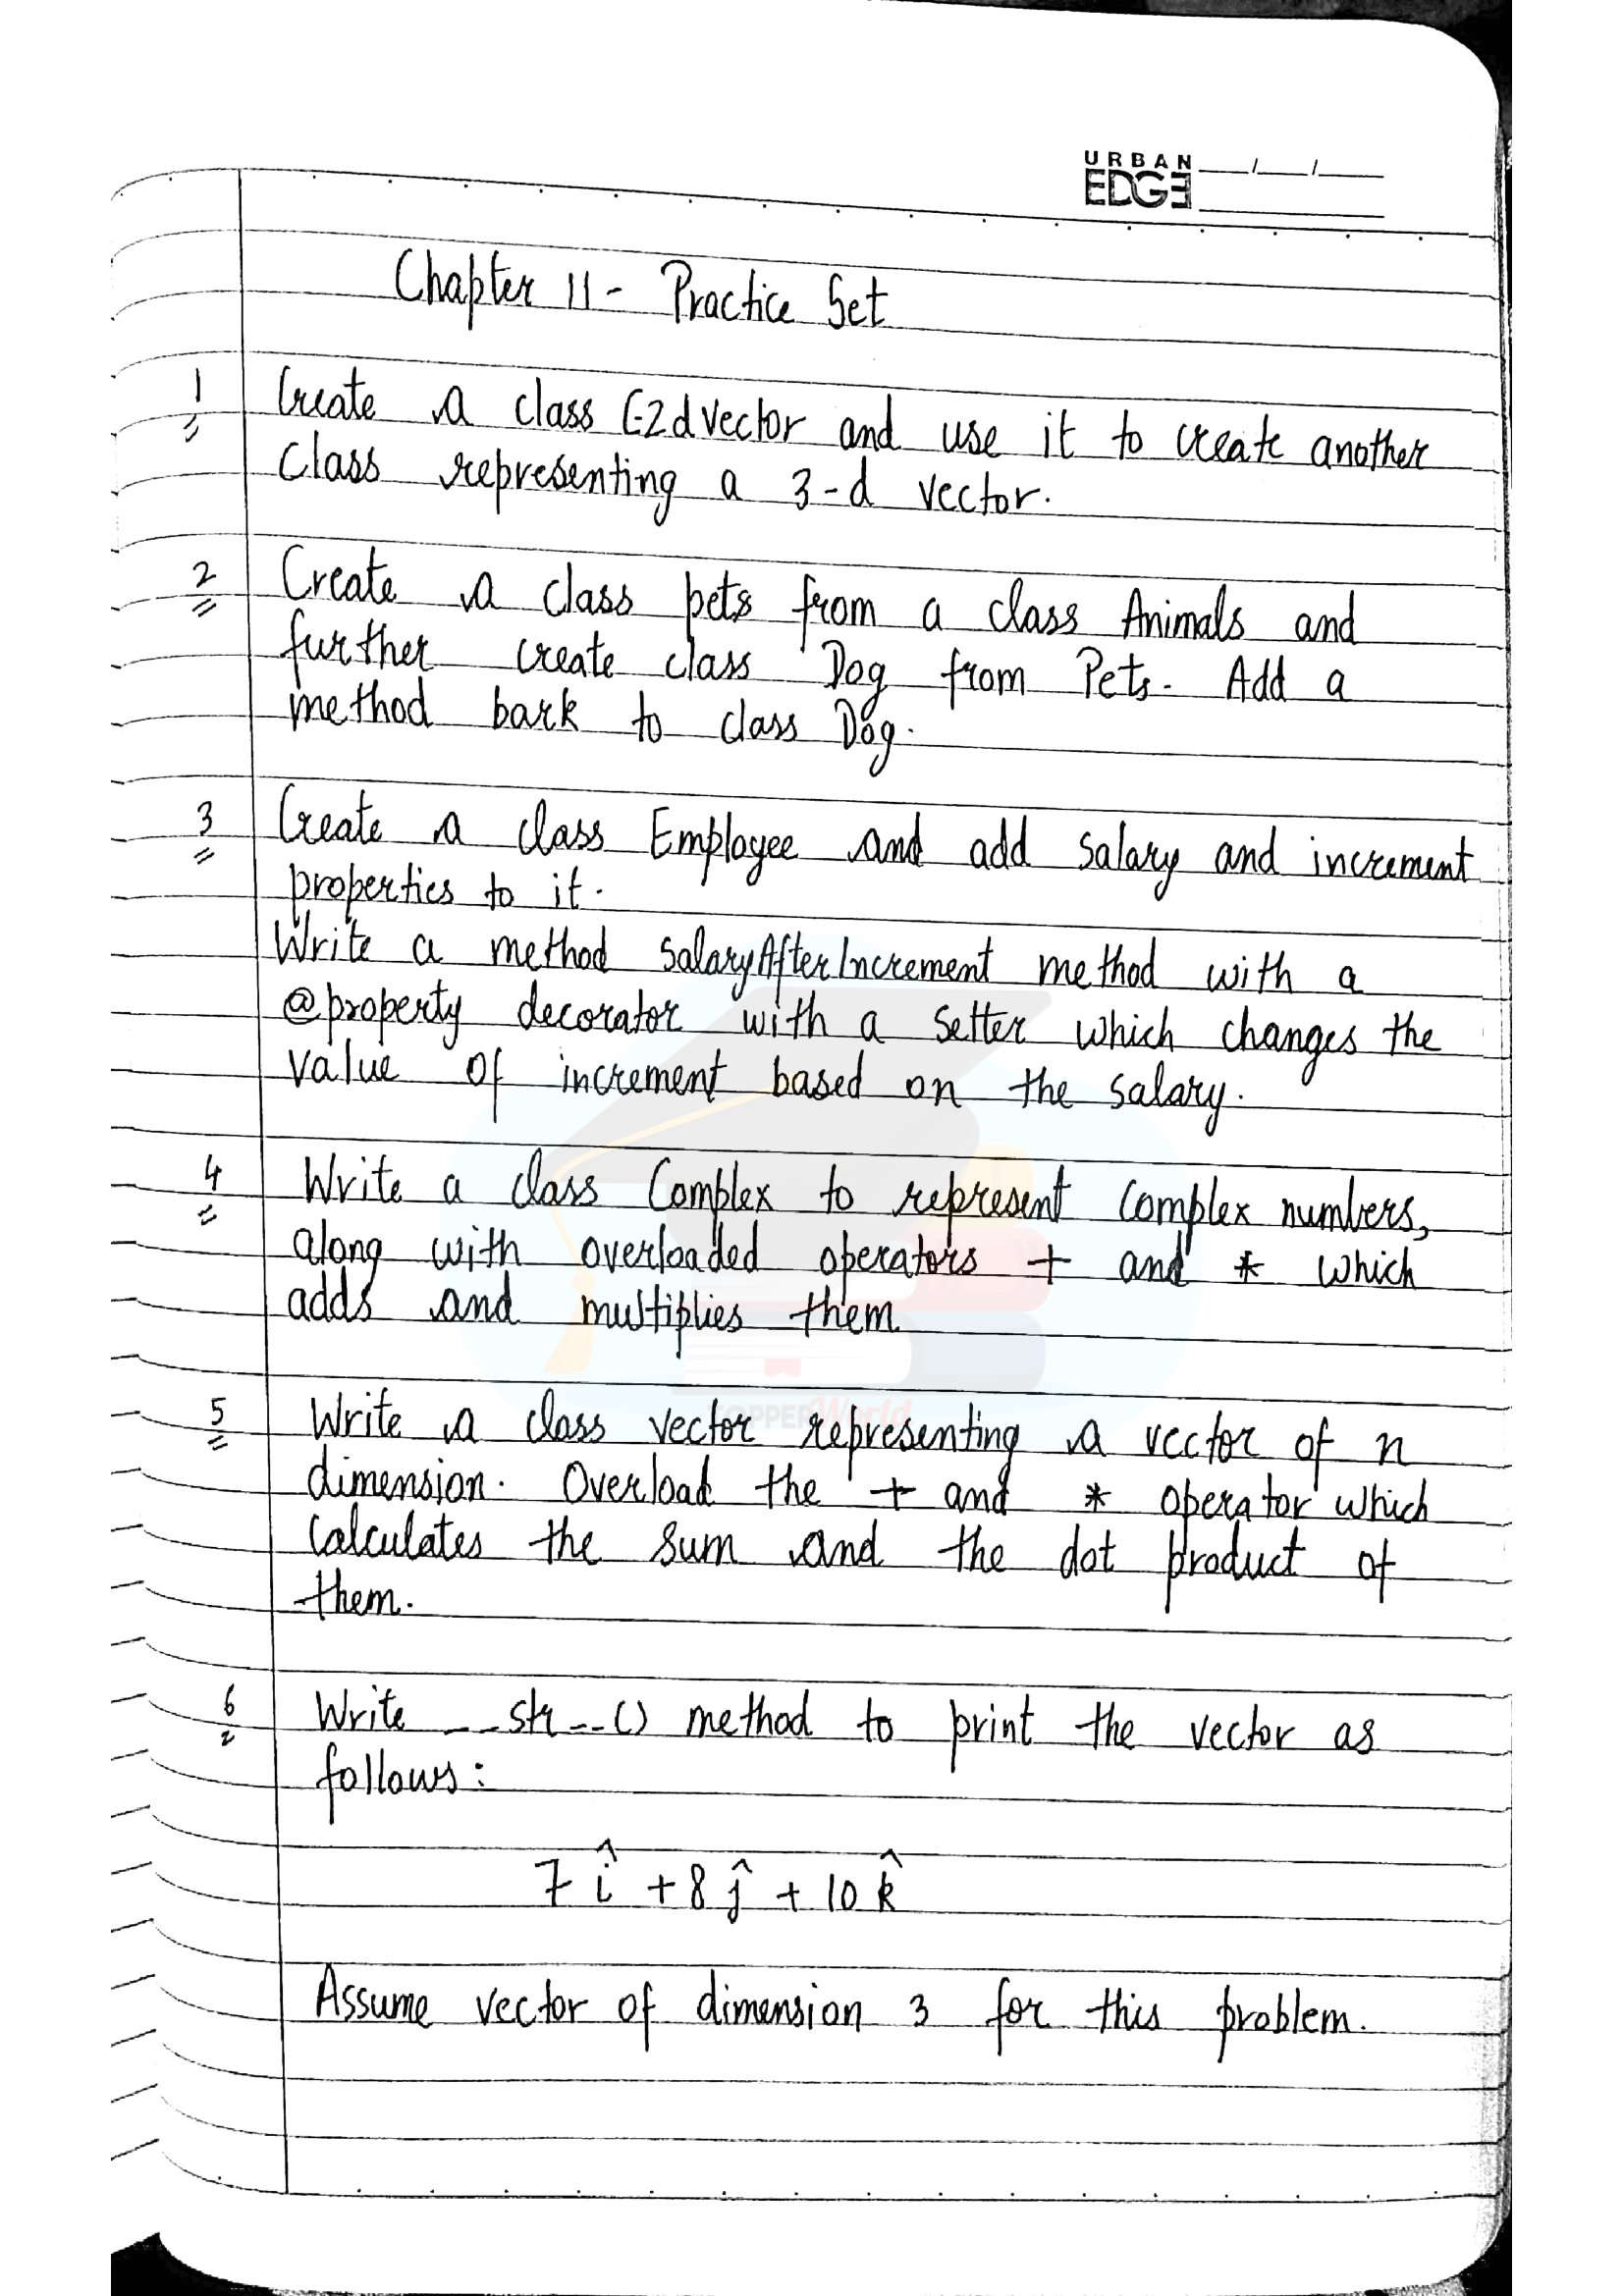 URBAN
EDGE
Chapter 11 - Practice Set
1 Create a class C-2dVector and use it to create another
class representing a 3-d vector.
2 Create a class pets from a class Animals and
further create class Dog from Pets. Add a
method bark to class Dog.
3 Create a class Employee and add salary and increment
properties to it.
Write a method SalaryAfterIncrement method with a
@property decorator with a setter which changes the
value of increment based on the salary.
4 Write a class Complex to represent complex numbers,
along with overloaded operators + and * which
adds and multiplies them
TOPPERWorld
5 Write a class vector representing a vector of n
dimension. Overload the + and * operator which
calculates the sum and the dot product of
them.
6 Write __str__() method to print the vector as
follows:
7 î + 8 ĵ + 10 k̂
Assume vector of dimension 3 for this problem.